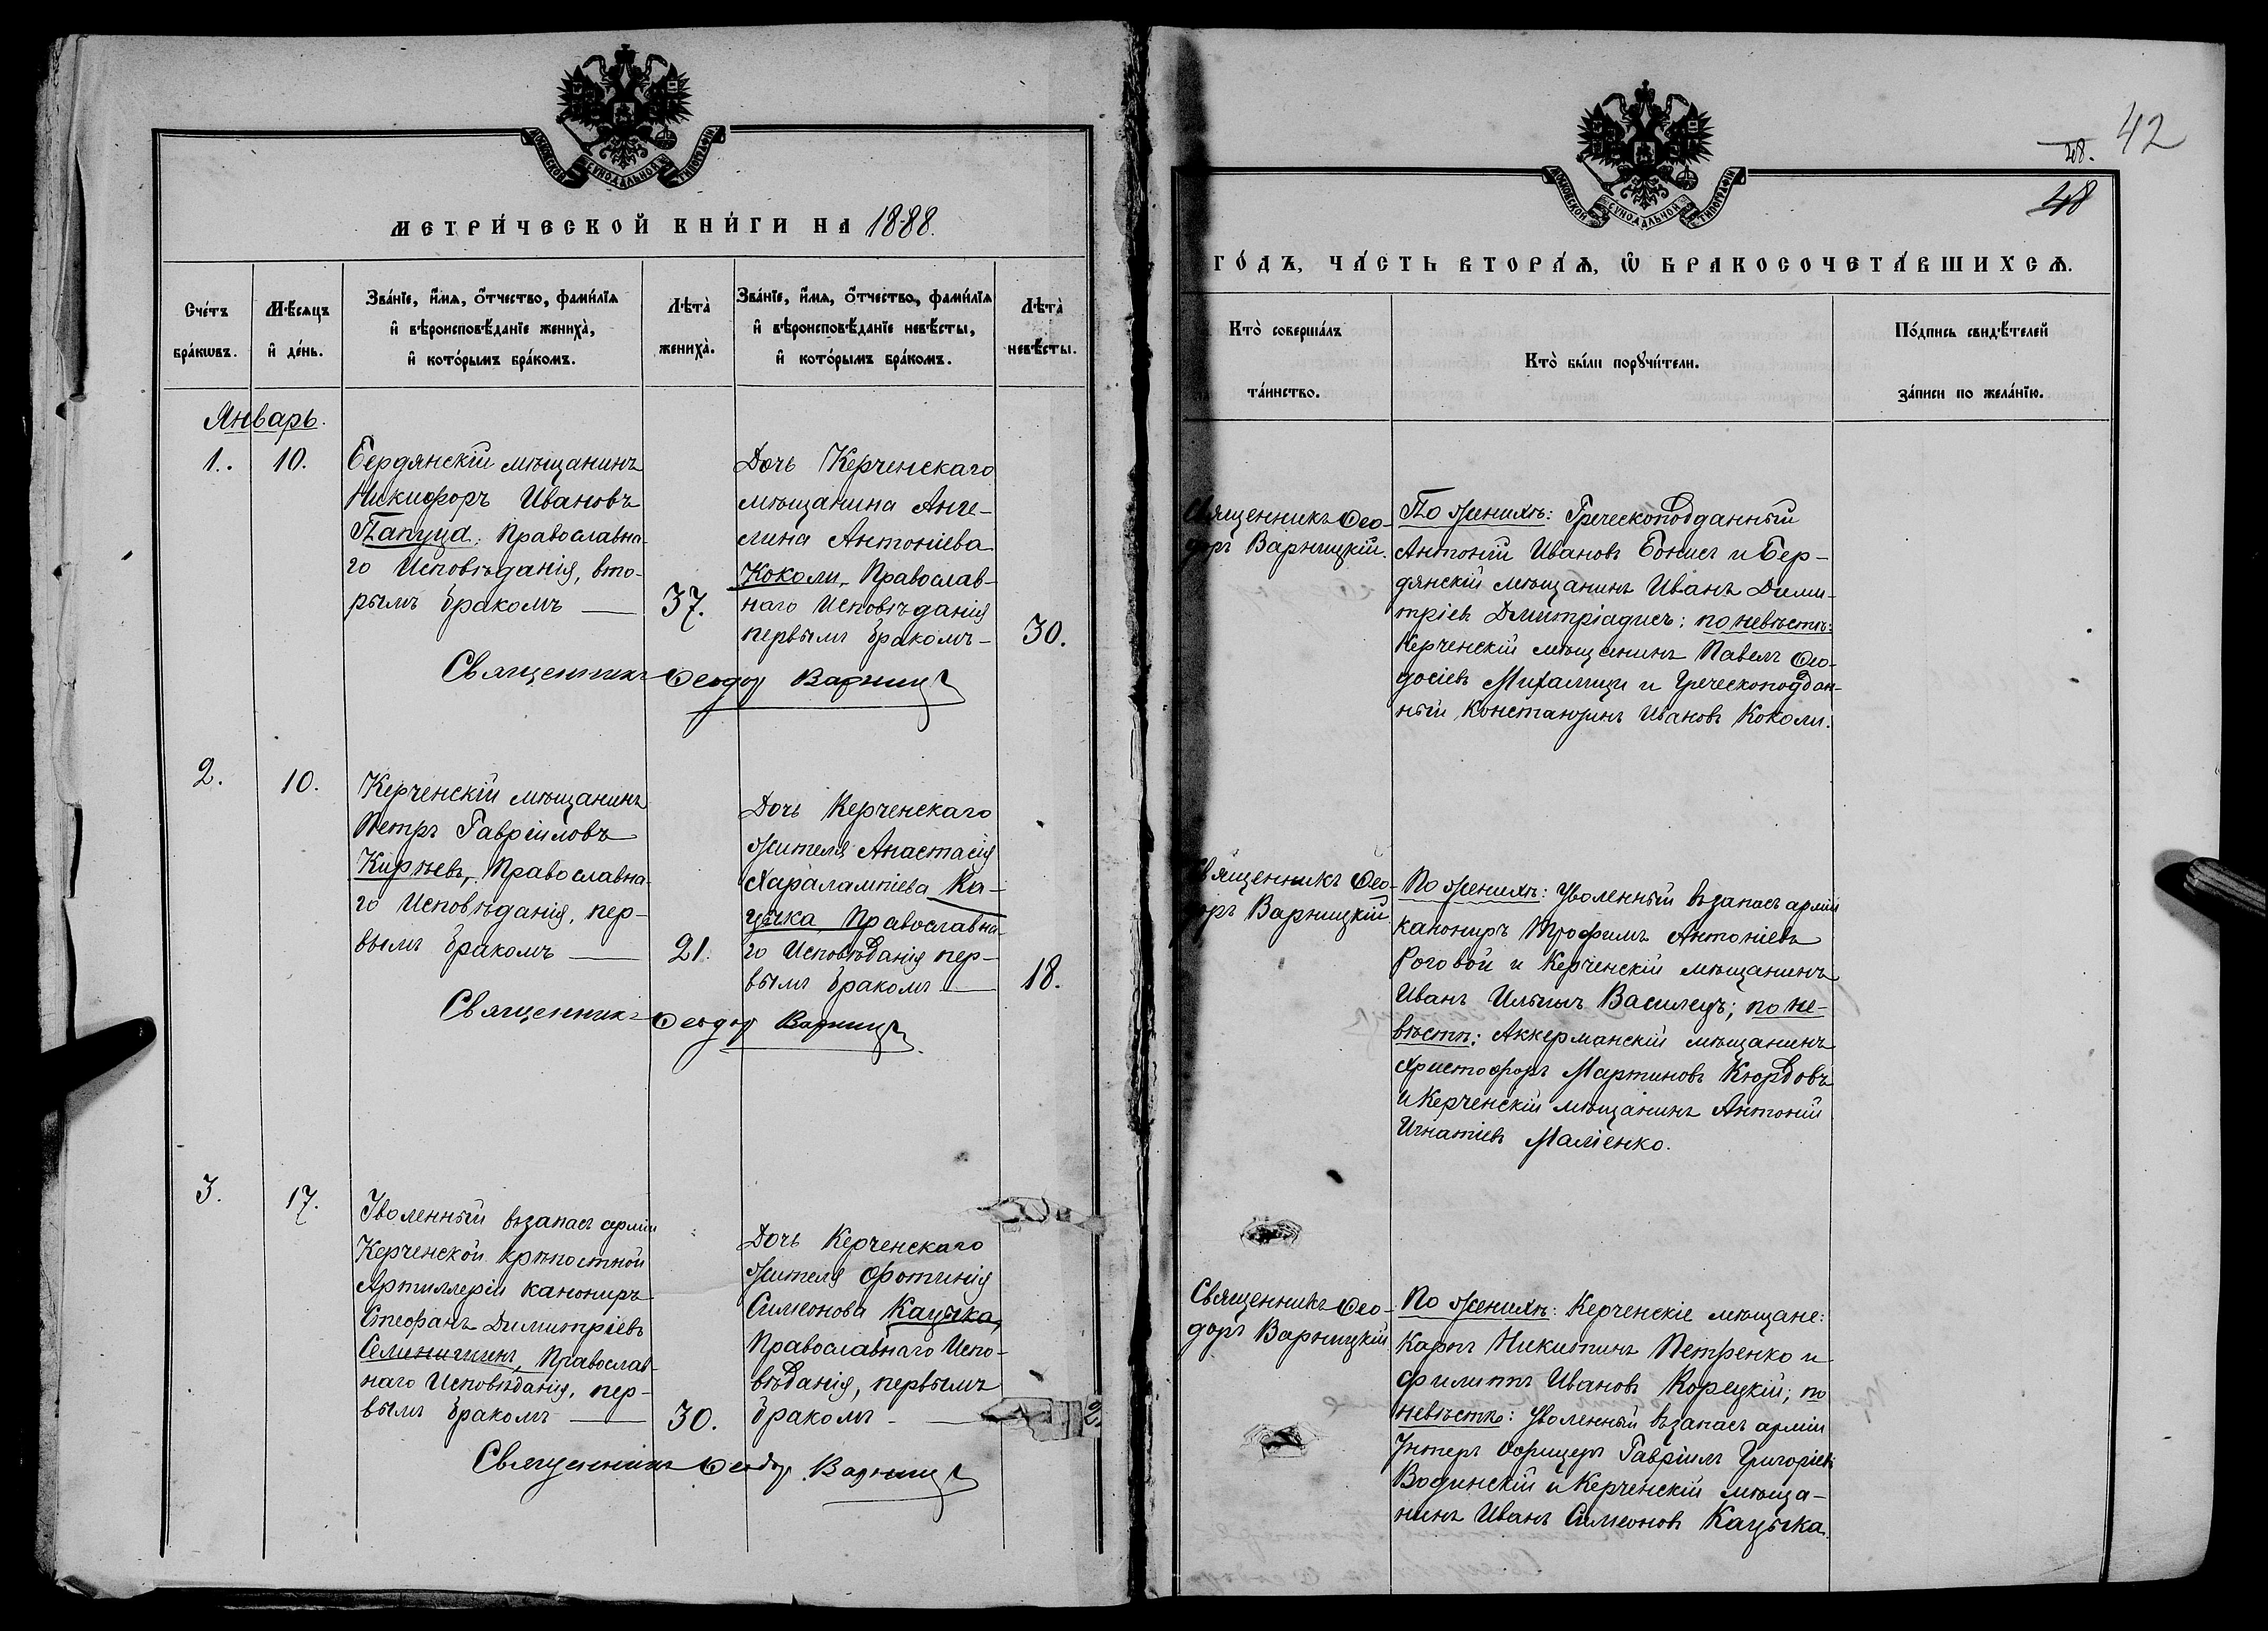 МОСКОВСКОЙ СУНОДАЛЬНОЙ ТИПОГРАФІИ
МЕТРИ́ЧЕСКОЙ КНИ́ГИ НА 1888.
Сче́тъ бра́кѡвъ.
Мѣ́сяцъ и҆ де́нь.
Зва́нїе, и҆́мя, ѻ҆́тчество, фами́лїя
и҆ вѣроисповѣ́данїе жениха̀,
и҆ кото́рымъ бра́комъ.
Лѣта̀ жениха̀.
Зва́нїе, и҆́мя, ѻ҆́тчество, фами́лїя
и҆ вѣроисповѣ́данїе невѣ́сты,
и҆ кото́рымъ бра́комъ.
Лѣта̀ невѣ́сты.
Январь.
1. 10.
Бердянскій мѣщанинъ
Никифоръ Ивановъ
Папуца, Православна-
го Исповѣданія, вто-
рымъ бракомъ —
37.
Дочь Керченскаго
мѣщанина Анге-
лина Антоніева
Коколи, Православ-
наго Исповѣданія
первымъ бракомъ —
30.
Священникъ Ѳеодоръ Варницкій
2. 10.
Керченскій мѣщанинъ
Петръ Гавріиловъ
Кирѣевъ, Православна-
го Исповѣданія, пер-
вымъ бракомъ —
21.
Дочь Керченскаго
жителя Анастасія
Харалампіева Ка-
цыка, Православна-
го Исповѣданія пер-
вымъ бракомъ —
18.
Священникъ Ѳеодоръ Варницкій
3. 17.
Уволенный въ запасъ арміи
Керченской крѣпостной
Артиллеріи канониръ
Стефанъ Димитріевъ
Православ-
наго Исповѣданія, пер-
вымъ бракомъ —
30.
Дочь Керченскаго
жителя Фотинія
Симеонова Кацыка,
Православнаго Испо-
вѣданія, первымъ
бракомъ —
2.
Священникъ Ѳеодоръ Варницкій
42
48.
48
МОСКОВСКОЙ СУНОДАЛЬНОЙ ТИПОГРАФІИ
ГО́ДЪ, ЧА́СТЬ ВТОРА́Ѧ, Ѡ҆ БРАКОСОЧЕТА́ВШИХСѦ.
Кто̀ соверша́лъ
та́инство.
Кто̀ бы́ли порꙋчи́тели.
По́дпись свидѣ́телей
за́писи по жела́нїю.
Священникъ Ѳео-
доръ Варницкій.
По женихѣ: Греческоподданный
Антоній Ивановъ Бонисъ и Бер-
дянскій мѣщанинъ Иванъ Дими-
тріевъ Дмитріадисъ; по невѣстѣ:
Керченскій мѣщанинъ Павелъ Ѳео-
досіевъ Михалици и Греческоподдан-
ный Константинъ Ивановъ Коколи.
Священникъ Ѳео-
доръ Варницкій
По женихѣ: Уволенный въ запасъ арміи
канониръ Трофимъ Антоніевъ
Роговой и Керченскій мѣщанинъ
Иванъ Ильинъ Василецъ; по не-
вѣстѣ: Аккерманскій мѣщанинъ
Христофоръ Мартиновъ Кюрдовъ
и Керченскій мѣщанинъ Антоній
Игнатіевъ Маліенко.
Священникъ Ѳео-
доръ Варницкій
По женихѣ: Керченскіе мѣщане:
Карпъ Никитинъ Петренко и
Филиппъ Ивановъ Корецкій; по
невѣстѣ: Уволенный въ запасъ арміи
Унтеръ Офицеръ Гавріилъ Григоріевъ
Водинскій и Керченскій мѣща-
нинъ Иванъ Симеоновъ Кацыка.